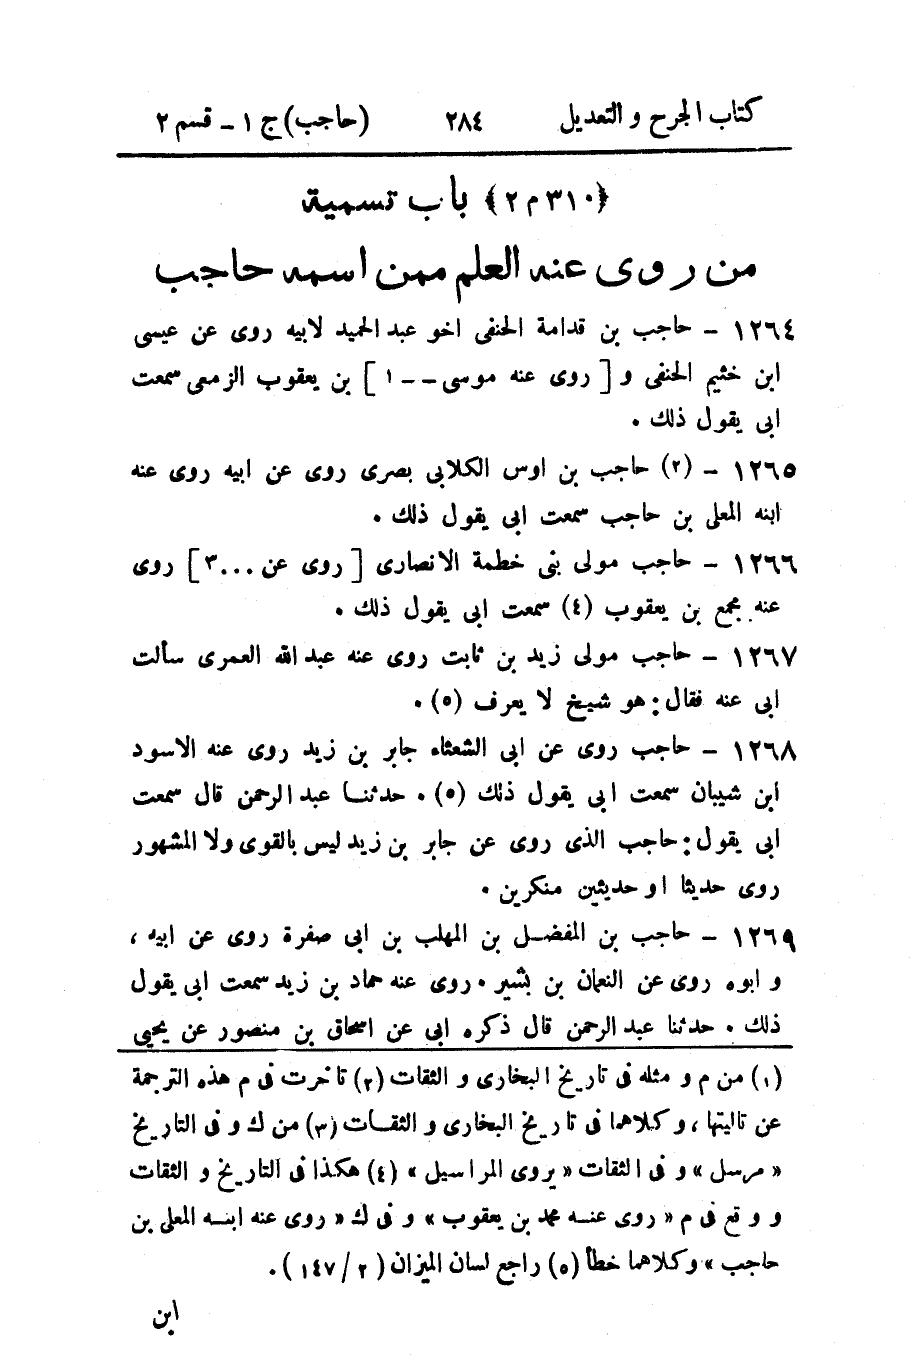 كتاب الجرح و التعديل ٢٨٤ (حاجب) ج ١ - قسم ٢
﴿٣١٠ م ٢﴾ باب تسمية
من روى عنه العلم ممن اسمه حاجب
١٢٦٤ - حاجب بن قدامة الحنفى اخو عبد الحميد لابيه روى عن عيسى
ابن خثيم الحنفى و [ روى عنه موسى -- ١ ] بن يعقوب الزمعى سمعت
ابى يقول ذلك .
١٢٦٥ - (٢) حاجب بن اوس الكلابى بصرى روى عن ابيه روى عنه
ابنه المعلى بن حاجب سمعت ابى يقول ذلك .
١٢٦٦ - حاجب مولى بنى خطمة الانصارى [ روى عن ...٣ ] روى
عنه مجمع بن يعقوب (٤) سمعت ابى يقول ذلك .
١٢٦٧ - حاجب مولى زيد بن ثابت روى عنه عبد الله العمرى سألت
ابى عنه فقال : هو شيخ لا يعرف (٥) .
١٢٦٨ - حاجب روى عن ابى الشعثاء جابر بن زيد روى عنه الاسود
ابن شيبان سمعت ابى يقول ذلك (٥) . حدثنا عبد الرحمن قال سمعت
ابى يقول : حاجب الذى روى عن جابر بن زيد ليس بالقوى ولا المشهور
روى حديثا او حديثين منكرين .
١٢٦٩ - حاجب بن المفضل بن المهلب بن ابى صفرة روى عن ابيه ،
و ابوه روى عن النعمان بن بشير . روى عنه حماد بن زيد سمعت ابى يقول
ذلك . حدثنا عبد الرحمن قال ذكره ابى عن اسحاق بن منصور عن يحيى
(١) من م و مثله فى تاريخ البخارى و الثقات (٢) تاخرت فى م هذه الترجمة
عن تاليتها ، و كلاهما فى تاريخ البخارى و الثقات (٣) من ك و فى التاريخ
« مرسل » و فى الثقات « يروى المراسيل » (٤) هكذا فى التاريخ و الثقات
و وقع فى م « روى عنه محمد بن يعقوب » و فى ك « روى عنه ابنه المعلى بن
حاجب » وكلاهما خطأ (٥) راجع لسان الميزان ( ٢ / ١٤٧ ) .
ابن